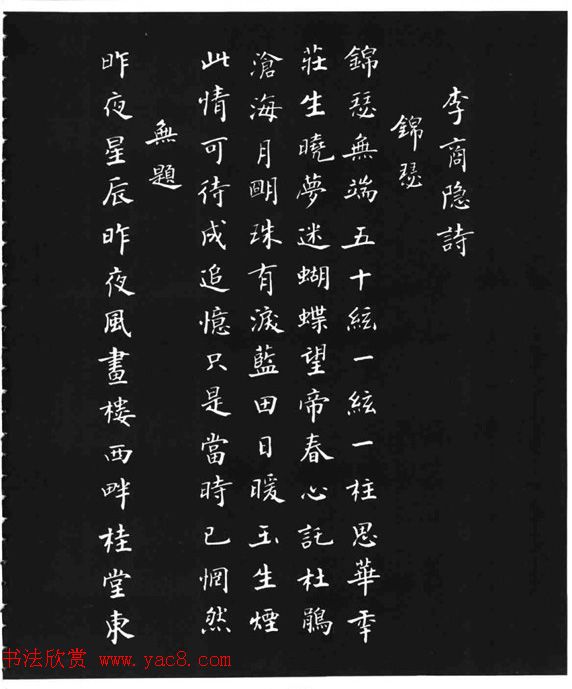 李商隐詩
錦瑟
錦瑟無端五十絃一絃一柱思華年
莊生曉夢迷蝴蝶望帝春心託杜鵑
滄海月明珠有淚藍田日暖玉生煙
此情可待成追憶只是當時已惘然
無題
昨夜星辰昨夜風畫楼西畔桂堂東
书法欣赏 www.yac8.com